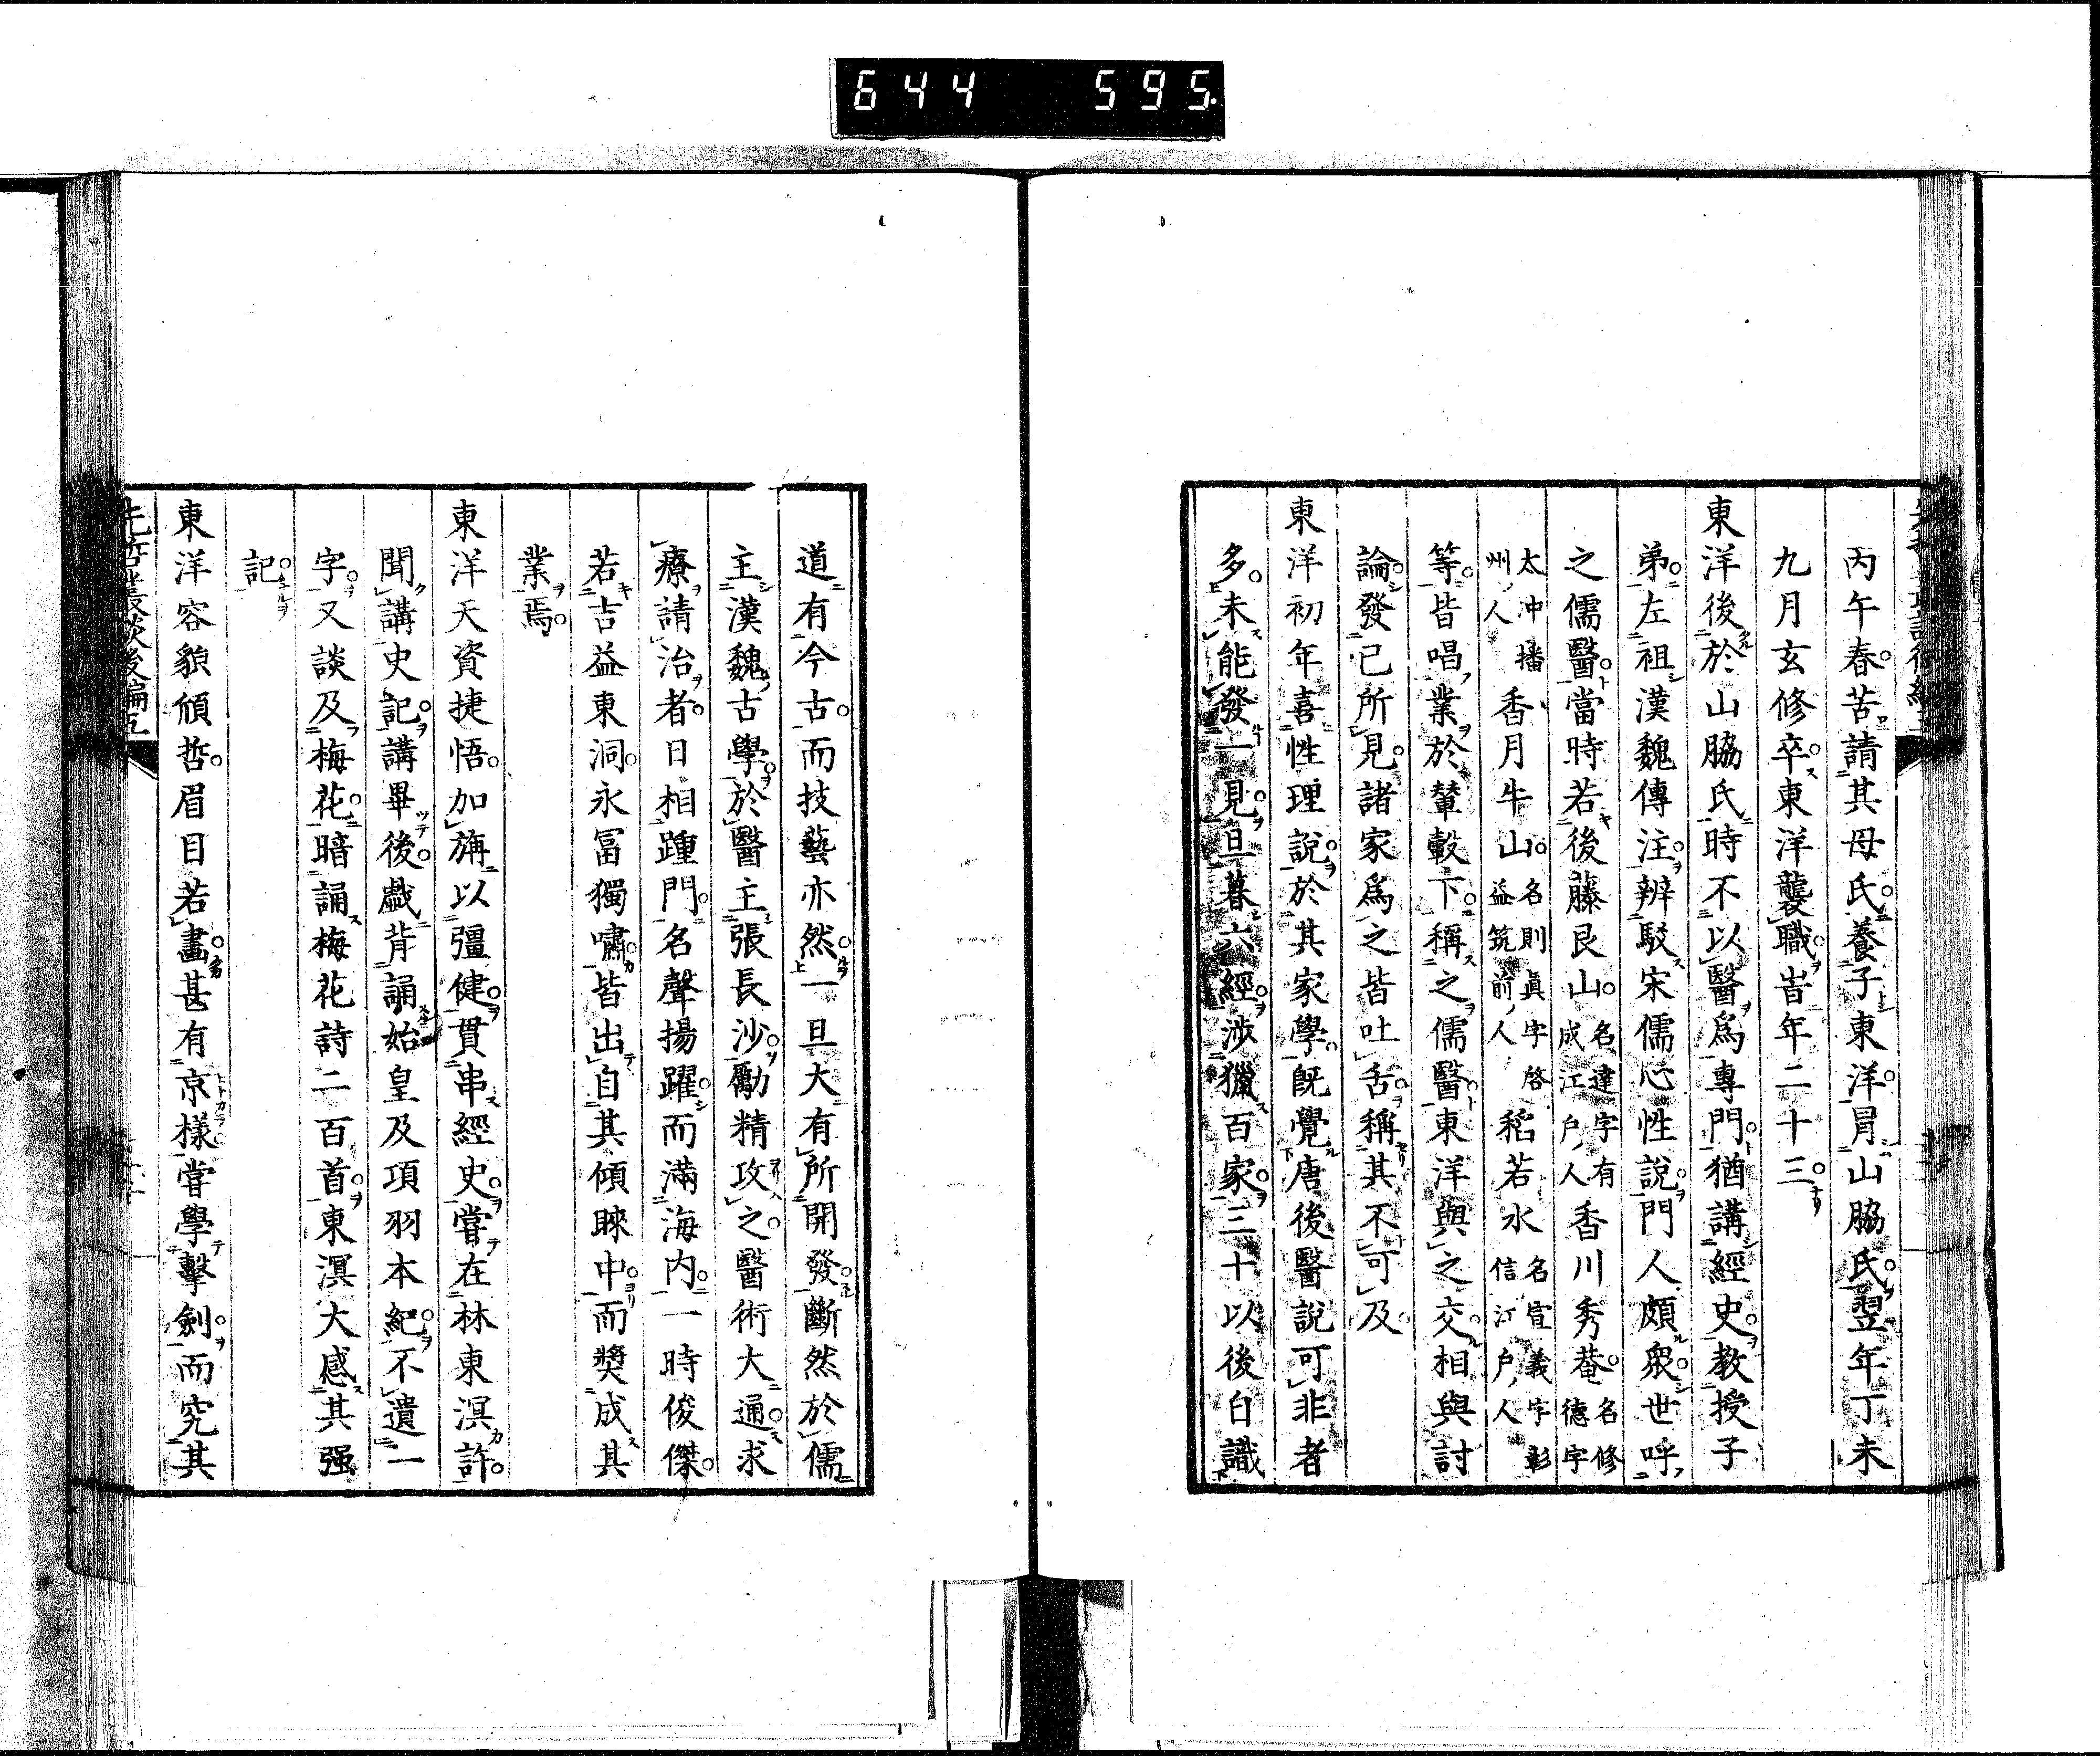 644 595
丙午春。苦請其母氏。養子東洋。冐山脇氏。翌年丁未
九月玄修卒。東洋襲職。旹年二十三。
東洋後於山脇氏時不以醫爲專門。猶講經史。教授子
弟。左袒漢魏傳注。辨駁宋儒心性說。門人頗衆。世呼
之儒醫。當時若後藤艮山。名達字有成江戸人香川秀菴。名修德字
太沖播州人香月牛山。名則眞字啓益筑前人稻若水名宣義字彰信江戸人
等。皆唱業於輦轂下。稱之儒醫。東洋與之交。相與討
論。發己所見。諸家爲之皆吐舌。稱其不可及。
東洋初年喜性理說。於其家學。旣覺唐後醫說可非者
多。未能發一見。旦暮六經。涉獵百家。三十以後自識
道有今古。而技藝亦然。一旦大有所開發。斷然於儒
主漢魏古學。於醫主張長沙。勵精攻之。醫術大通。求
療請治者。日相踵門。名聲揚躍。而滿海内。一時俊傑。
若吉益東洞。永冨獨嘯。皆出自其傾睞中。而奬成其
業焉。
東洋天資捷悟。加旃以彊健。貫串經史。嘗在林東溟許。
聞講史記。講畢後。戱背誦始皇及項羽本紀。不遺一
字。又談及梅花。暗誦梅花詩二百首。東溟大感其强
記。
東洋容貌頎哲。眉目若畫。甚有京樣。嘗學擊劍。而究其
先哲叢談後編五